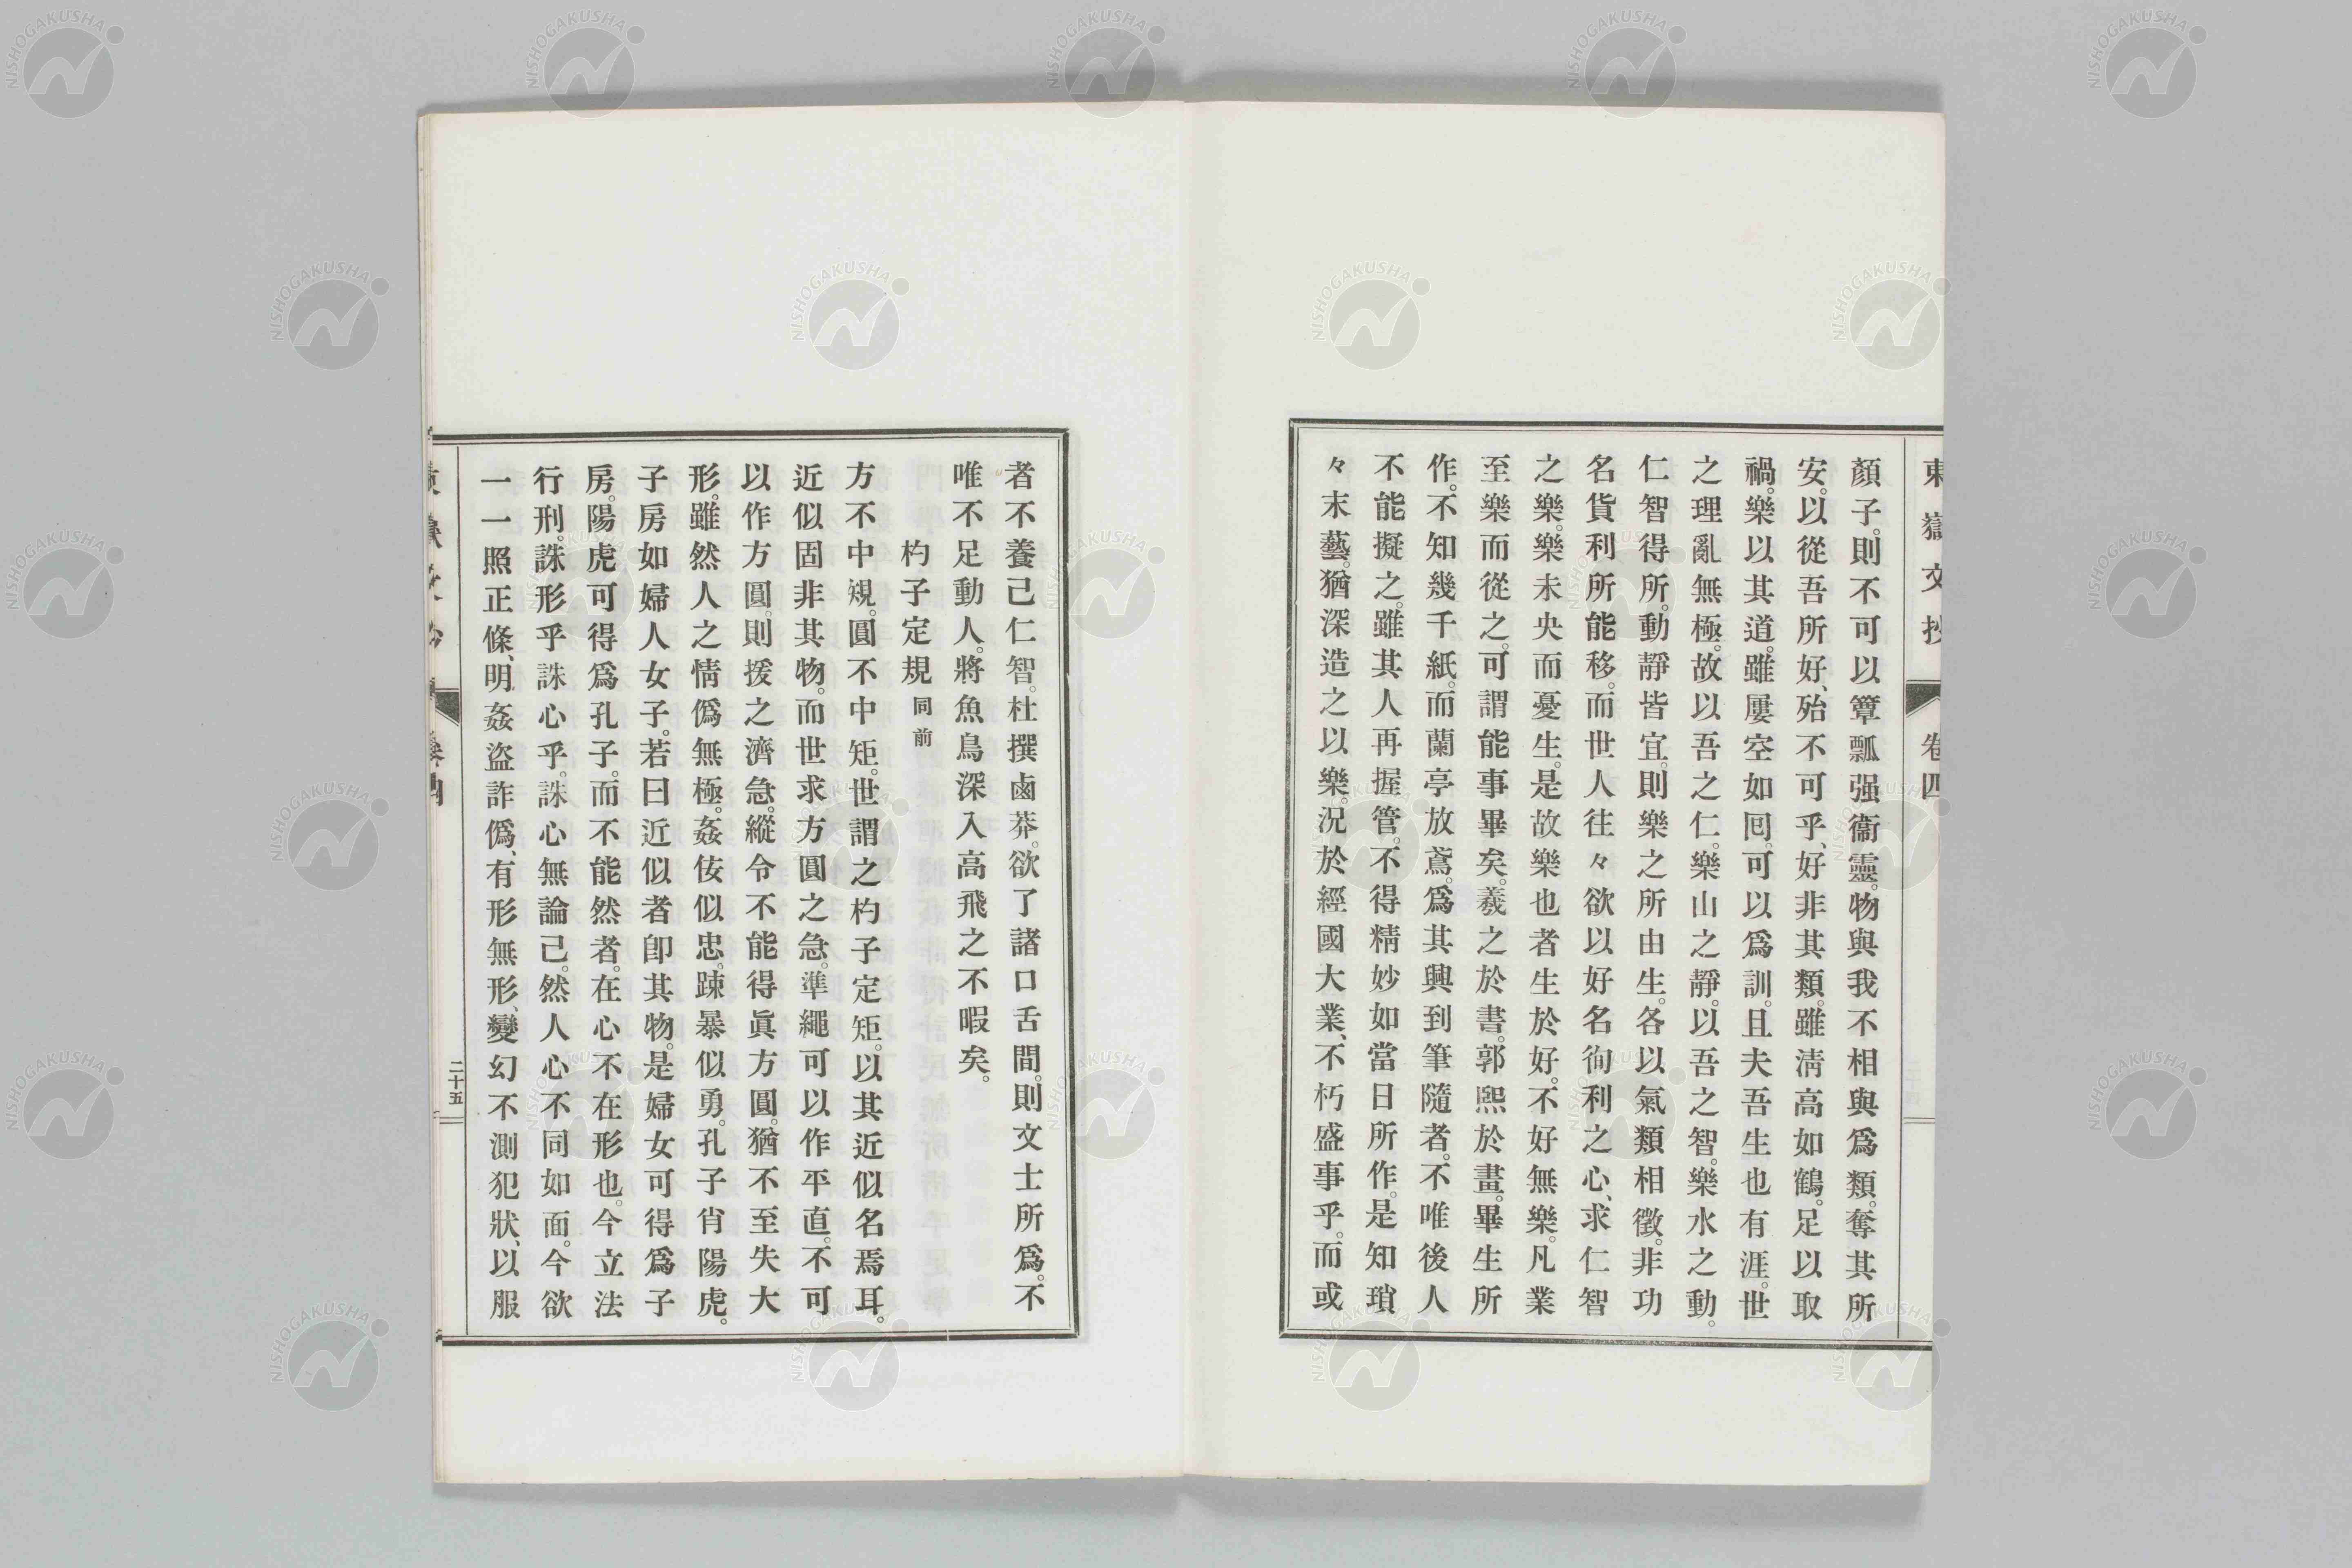 東嶽文抄 卷四
顏子。則不可以簞瓢强衞靈。物與我不相與爲類。奪其所
安。以從吾所好、殆不可乎、好非其類。雖淸高如鶴。足以取
禍。樂以其道。雖屢空如囘。可以爲訓。且夫吾生也有涯。世
之理亂無極。故以吾之仁。樂山之靜。以吾之智。樂水之動。
仁智得所。動靜皆宜。則樂之所由生。各以氣類相徵。非功
名貨利所能移。而世人往々欲以好名徇利之心、求仁智
之樂。樂未央而憂生。是故樂也者生於好。不好無樂。凡業
至樂而從之。可謂能事畢矣。羲之於書。郭熙於畫。畢生所
作。不知幾千紙。而蘭亭放鳶。爲其興到筆隨者。不唯後人
不能擬之。雖其人再握管。不得精妙如當日所作。是知瑣
々末藝。猶深造之以樂。況於經國大業、不朽盛事乎。而或
者不養己仁智。杜撰鹵莽。欲了諸口舌間。則文士所爲。不
唯不足動人。將魚鳥深入高飛之不暇矣。
杓子定規 同前
方不中規。圓不中矩。世謂之杓子定矩。以其近似名焉耳。
近似固非其物。而世求方圓之急。準繩可以作平直。不可
以作方圓。則援之濟急。縱令不能得眞方圓。猶不至失大
形。雖然人之情僞無極。姦侫似忠。踈暴似勇。孔子肖陽虎。
子房如婦人女子。若曰近似者卽其物。是婦女可得爲子
房。陽虎可得爲孔子。而不能然者。在心不在形也。今立法
行刑。誅形乎誅心乎。誅心無論已。然人心不同如面。今欲
一一照正條、明姦盜詐僞、有形無形、變幻不測犯狀、以服
二十五
NISHOGAKUSHA